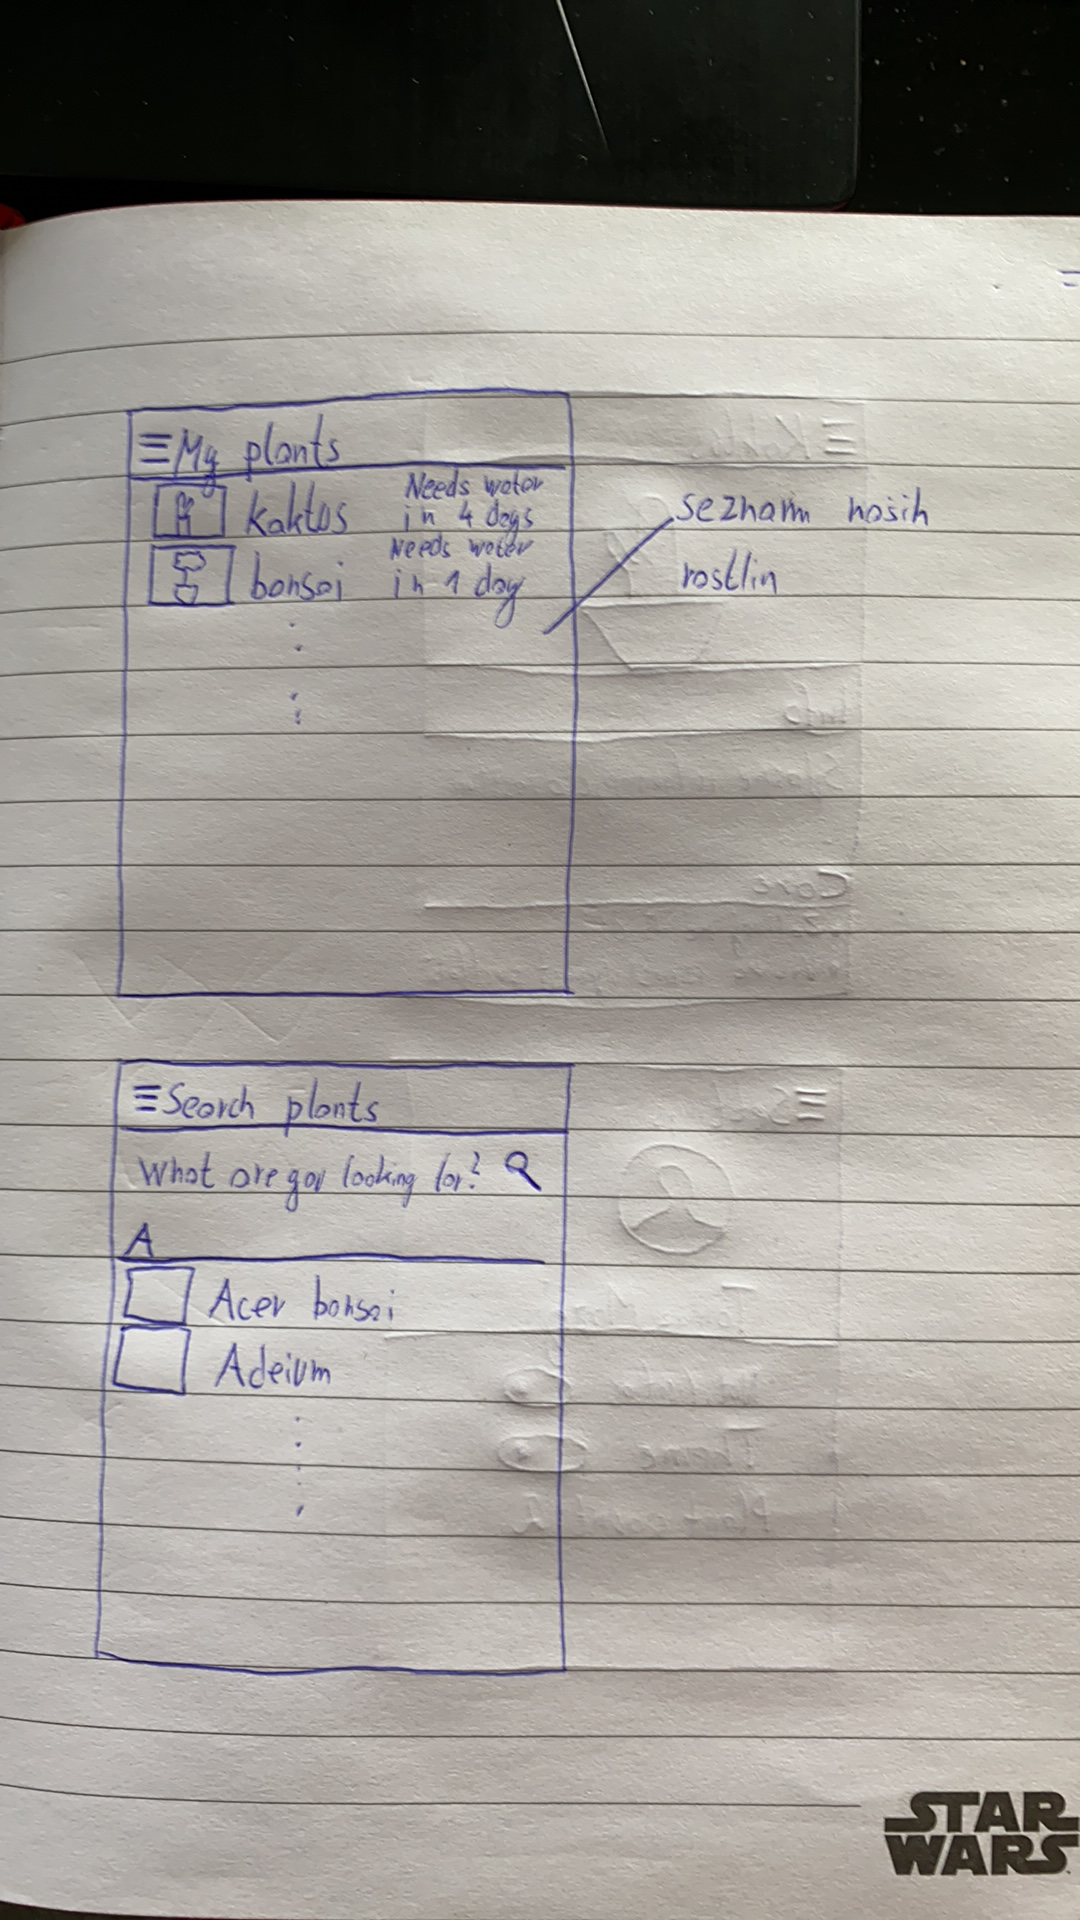 My plants
kaktus Needs water in 4 days
bonsai Needs water in 1 day
seznam našich
rostlin
Search plants
What are you looking for?
A
Acer bonsai
Adeium
STAR
WARS